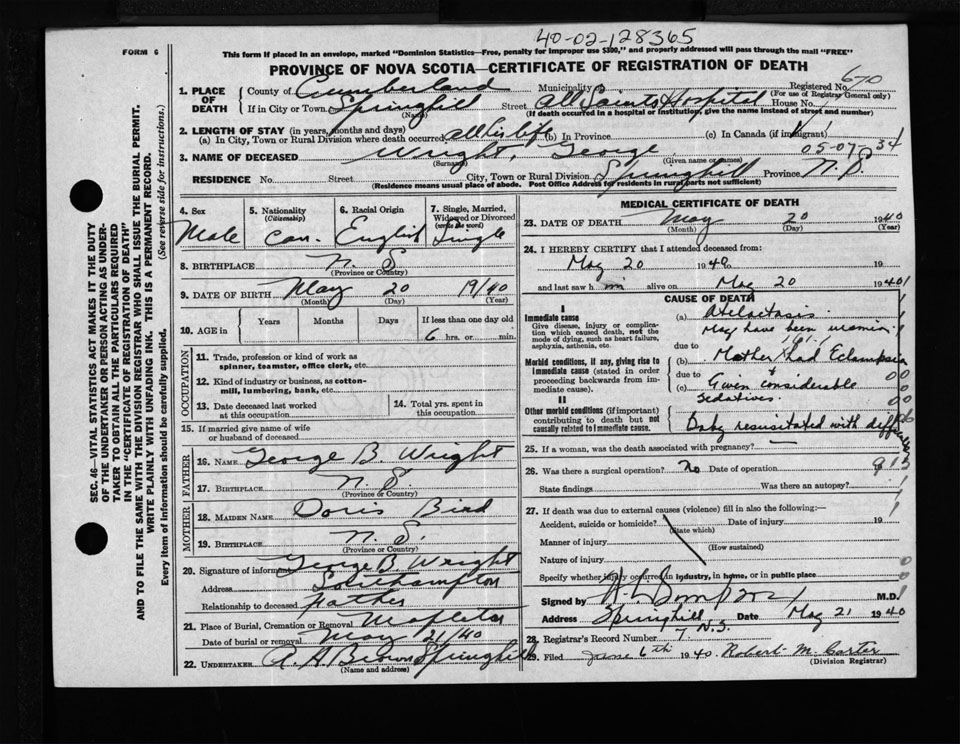 40-02-128365
FORM 6
This form if placed in an envelope, marked "Dominion Statistics—Free, penalty for improper use $300," and properly addressed will pass through the mail "FREE"
PROVINCE OF NOVA SCOTIA—CERTIFICATE OF REGISTRATION OF DEATH
670
1. PLACE OF DEATH
County of Cumberland Municipality Registered No.
(For use of Registrar General only)
If in City or Town Springhill Street All Saints Hospital House No.
(Name) (If death occurred in a hospital or institution, give the name instead of street and number)
2. LENGTH OF STAY (in years, months and days)
(a) In City, Town or Rural Division where death occurred all his life (b) In Province (c) In Canada (if immigrant)
05-07 34
3. NAME OF DECEASED Wright, George
(Surname) (Given name or names)
RESIDENCE No. Street City, Town or Rural Division Springhill Province N.S.
(Residence means usual place of abode. Post Office Address for residents in rural parts not sufficient)
4. Sex Male
5. Nationality (Citizenship) Can.
6. Racial Origin English
7. Single, Married, Widowed or Divorced (write the word) Single
8. BIRTHPLACE N S
(Province or Country)
9. DATE OF BIRTH May 20 19/40
(Month) (Day) (Year)
10. AGE in Years Months Days If less than one day old
6 hrs. or min.
OCCUPATION
11. Trade, profession or kind of work as spinner, teamster, office clerk, etc.
12. Kind of industry or business, as cotton-mill, lumbering, bank, etc.
13. Date deceased last worked at this occupation
14. Total yrs. spent in this occupation
15. If married give name of wife or husband of deceased
FATHER
16. NAME George B. Wright
17. BIRTHPLACE N.S.
(Province or Country)
MOTHER
18. MAIDEN NAME Doris Bird
19. BIRTHPLACE N.S.
(Province or Country)
20. Signature of informant George B. Wright
Address Southampton
Relationship to deceased Father
21. Place of Burial, Cremation or Removal Mapleton
Date of burial or removal May 21/40
22. UNDERTAKER A. H. Brown Springhill
(Name and address)
MEDICAL CERTIFICATE OF DEATH
23. DATE OF DEATH May 20 1940
(Month) (Day) (Year)
24. I HEREBY CERTIFY that I attended deceased from:
May 20 1940 19
and last saw him alive on May 20 1940
CAUSE OF DEATH
I
Immediate cause
Give disease, injury or complication which caused death, not the mode of dying, such as heart failure, asphyxia, asthenia, etc.
(a) Atelectasis
May have been uraemia
161-1
due to
Morbid conditions, if any, giving rise to immediate cause (stated in order proceeding backwards from immediate cause).
(b) Mother had Eclampsia
due to &
(c) Given considerable
sedatives.
II
Other morbid conditions (if important) contributing to death but not causally related to immediate cause.
Baby resusitated with difficulty
25. If a woman, was the death associated with pregnancy?
26. Was there a surgical operation? no Date of operation
State findings Was there an autopsy?
27. If death was due to external causes (violence) fill in also the following:—
Accident, suicide or homicide? Date of injury 19
(State which)
Manner of injury
(How sustained)
Nature of injury
Specify whether injury occurred in industry, in home, or in public place
Signed by M.D.
Address Springhill N.S. Date May 21 1940
28. Registrar's Record Number 7
29. Filed June 6th 1940 Robert M. Carter
(Division Registrar)
SEC. 46—VITAL STATISTICS ACT MAKES IT THE DUTY
OF THE UNDERTAKER OR PERSON ACTING AS UNDER-
TAKER TO OBTAIN ALL THE PARTICULARS REQUIRED
IN THE "CERTIFICATE OF REGISTRATION OF DEATH"
AND TO FILE THE SAME WITH THE DIVISION REGISTRAR WHO SHALL ISSUE THE BURIAL PERMIT.
WRITE PLAINLY WITH UNFADING INK. THIS IS A PERMANENT RECORD.
Every item of information should be carefully supplied. (See reverse side for instructions.)